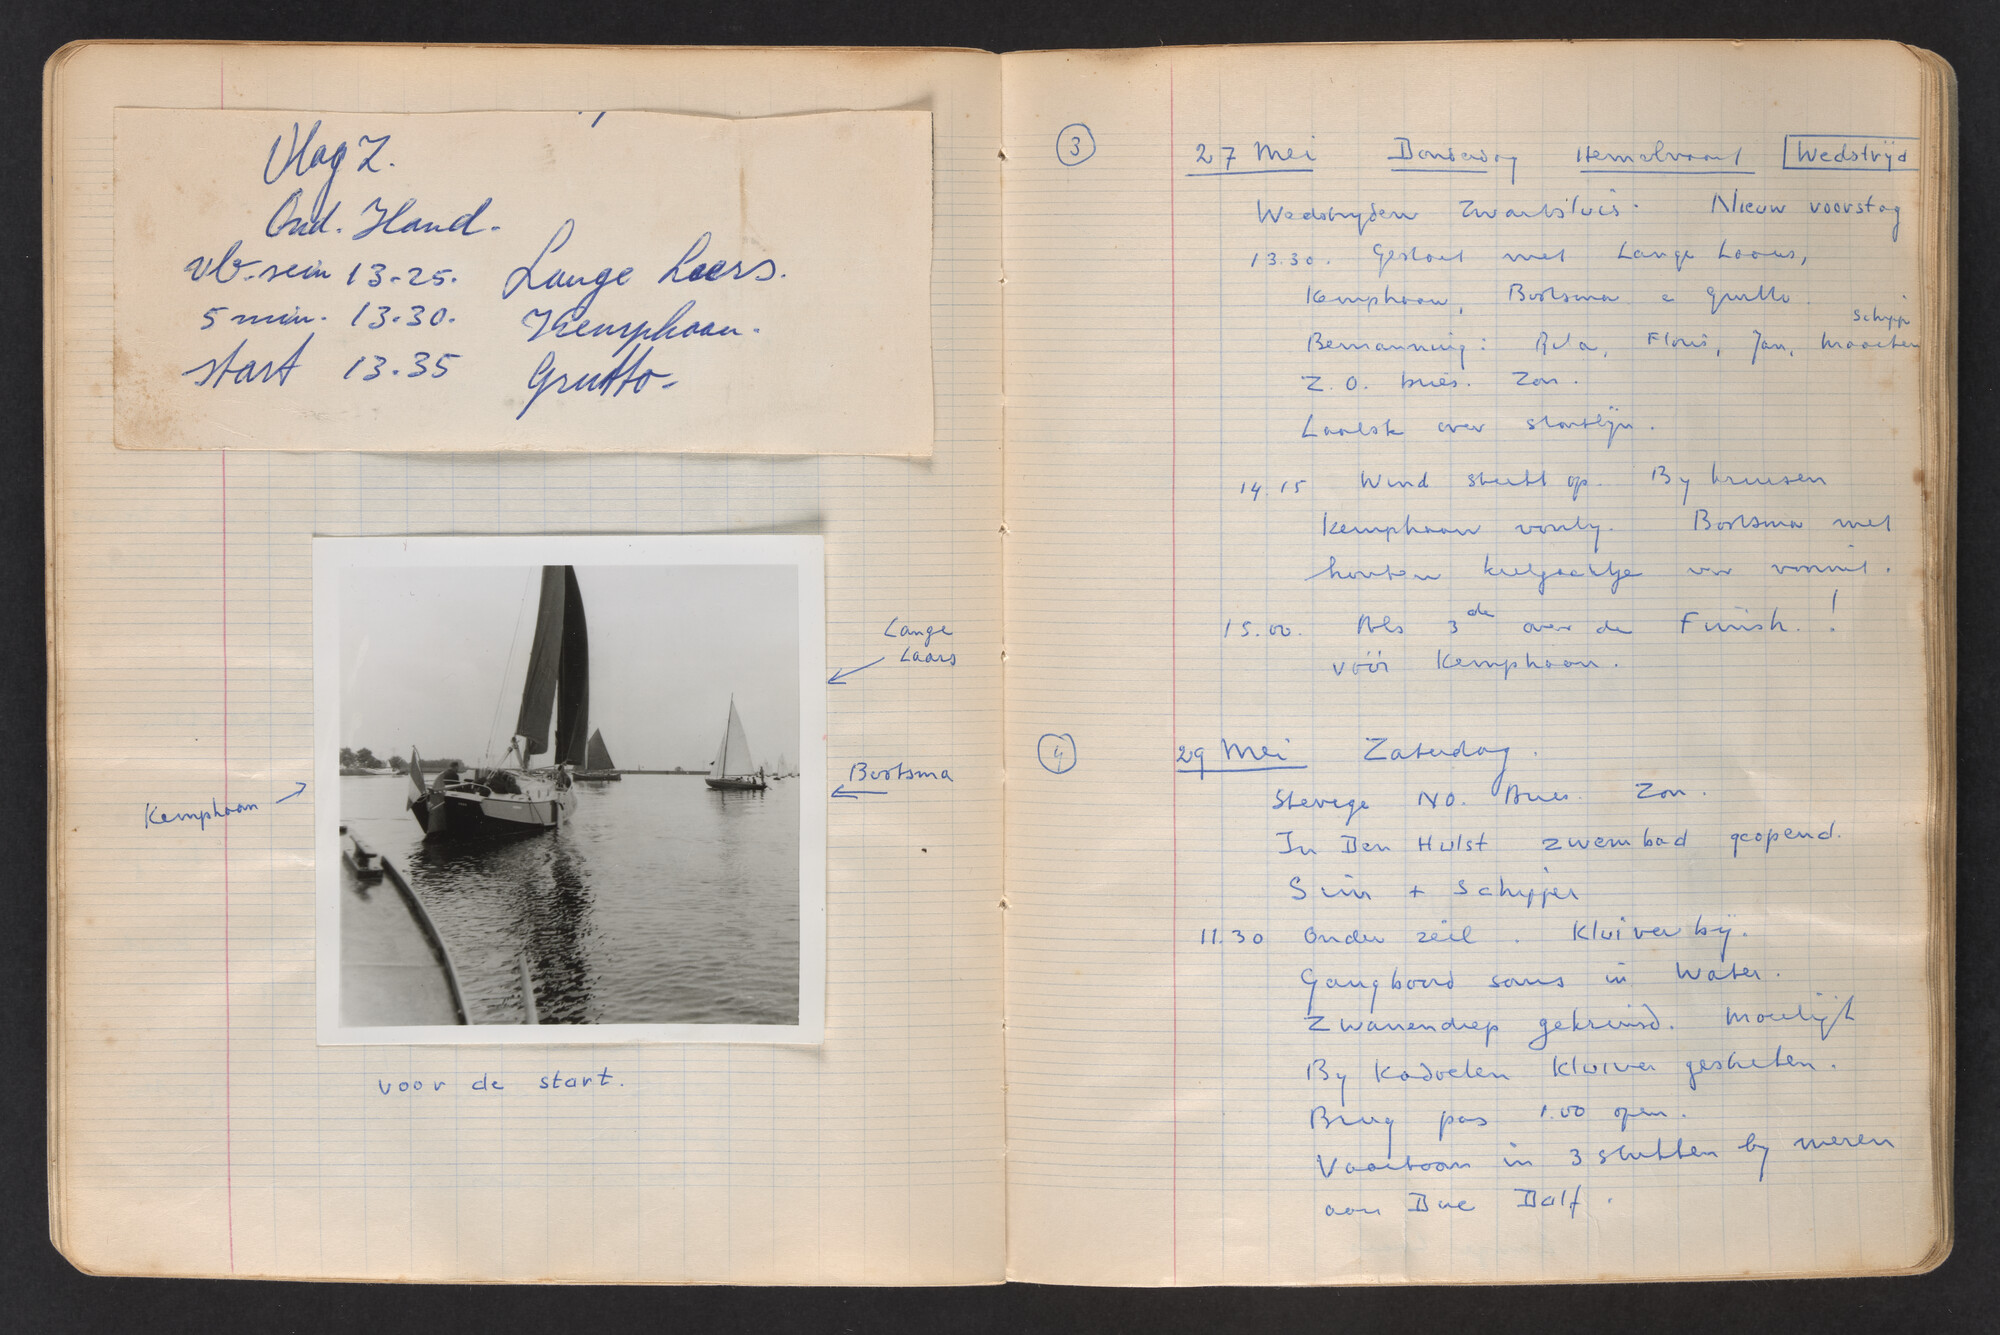 Vlag Z.
Ond. Hand.
vb. sein 13-25. Lange Leers.
5 min. 13.30. Kemphaan.
start 13.35 Grutto-
Lange
Laars
Bootsma
Kemphaan
voor de start.
3 27 Mei Donderdag Hemelvaart Wedstrijd
Wedstryden Zwartsluis. Nieuw voorstag
13.30. Gestart met Lange Laars,
Kemphaan, Bootsma e Grutto.
Schipp
Bemanning: Rita, Floris, Jan, Maarten
Z.O. bries. Zon.
Laatst over startlijn.
14.15 Wind steekt op. By kruisen
Kemphaan voorby. Bootsma met
houten kieljachtje ver vooruit.
15.00. Als 3de over de Finish.!
vóór Kemphaan.
4 29 Mei Zaterdag.
Stevige NO. Bries. Zon.
In Den Hulst zwembad geopend.
Siin + Schipper
11.30 Onder zeil. Kluiver bij.
Gangboord soms in Water.
Zwanendiep gekruisd. Moeilijk
By Kadoelen Kluiver gestreken.
Brug pas 1.00 open.
Vaarboom in 3 stukken by meren
aan Doe Dolf.